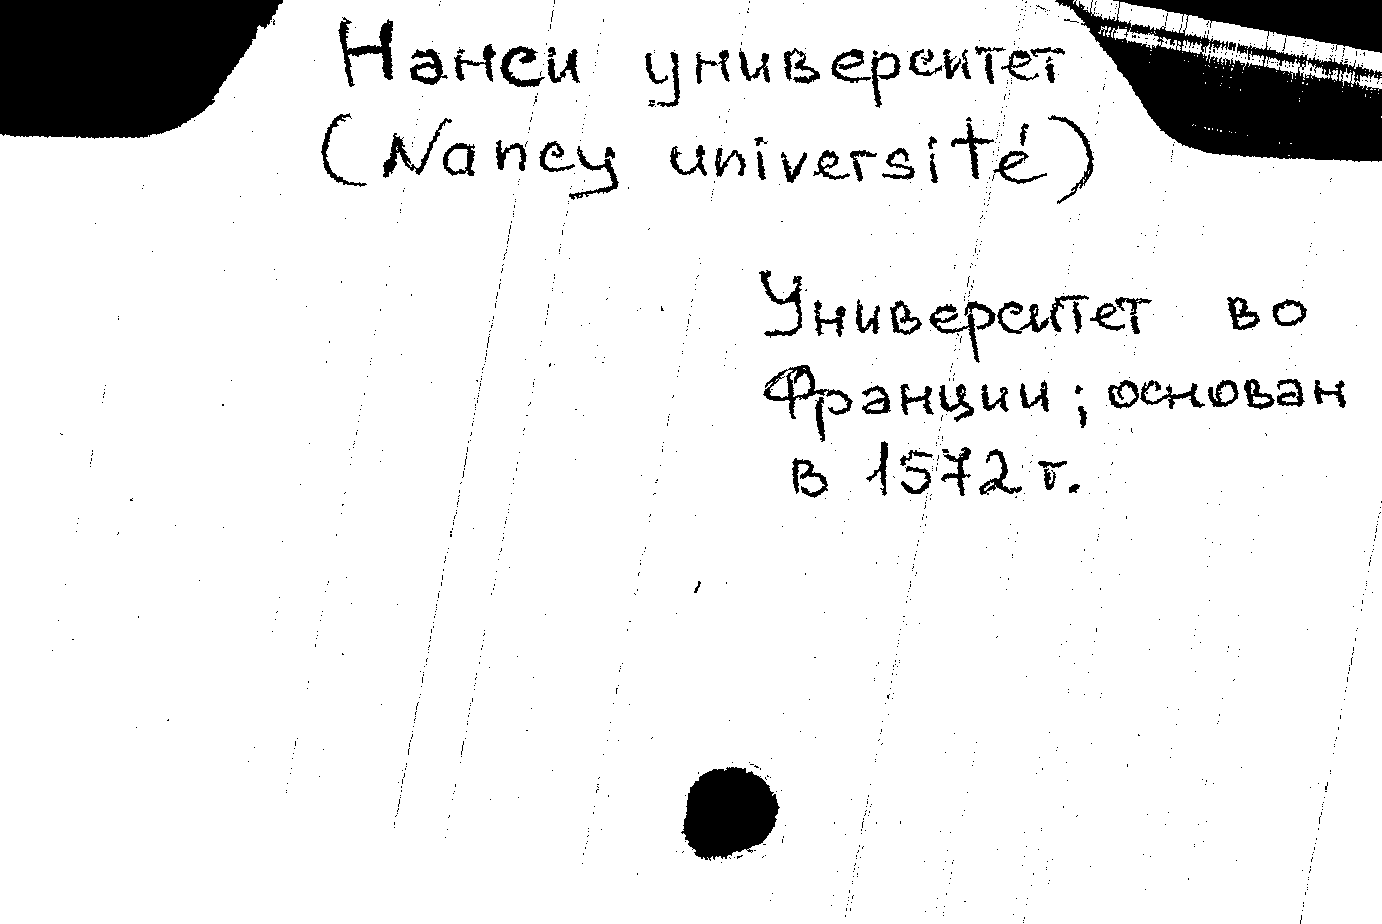 Нанси университет
(Nancy université)
Университет во
Франции; основан
в 1572 г.